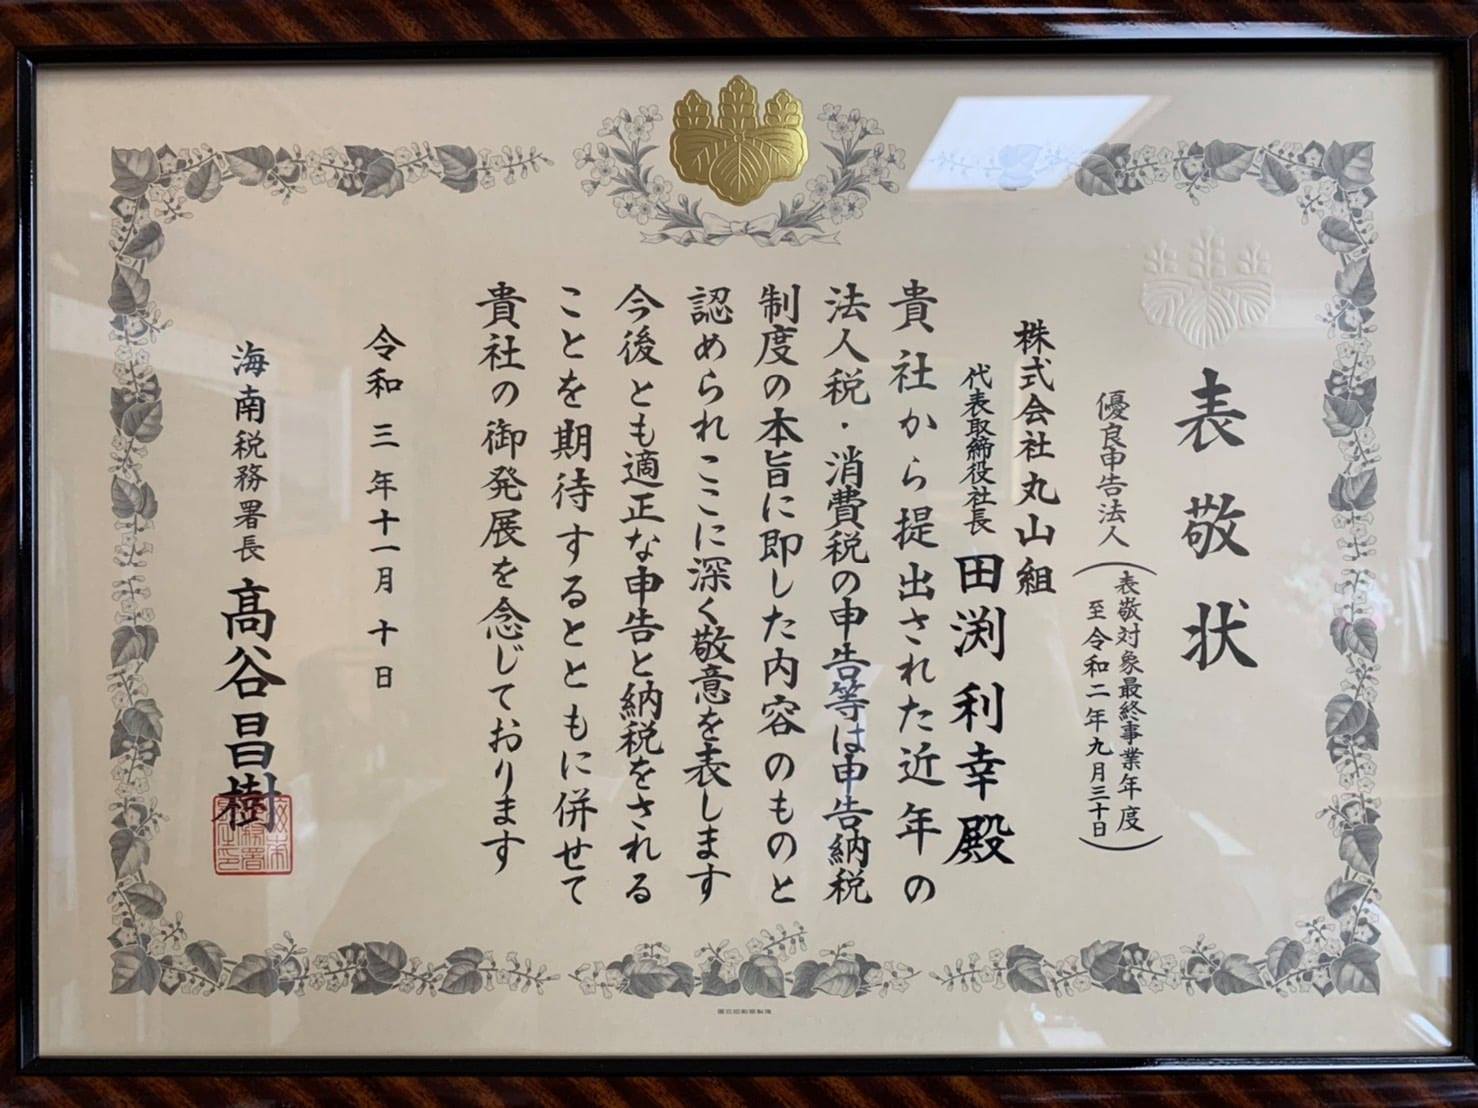 表敬状
優良申告法人(表敬対象最終事業年度
至令和二年九月三十日)
株式会社丸山組
代表取締役社長 田渕利幸殿
貴社から提出された近年の
法人税・消費税の申告等は申告納税
制度の本旨に即した内容のものと
認められここに深く敬意を表します
今後とも適正な申告と納税をされる
ことを期待するとともに併せて
貴社の御発展を念じております
令和三年十一月十日
海南税務署長 髙谷昌樹